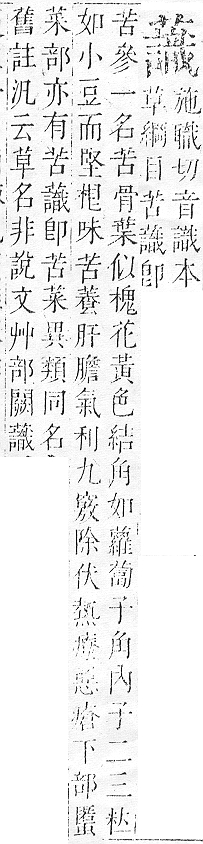 𧄹施職切音識本
草綱目苦𧄹卽
苦參一名苦骨葉似槐花黃色結角如蘿蔔子角內子二三粒
如小豆而堅根味苦養肝膽氣利九竅除伏熱療惡瘡下部䘌
菜部亦有苦𧄹卽苦菜異類同名
舊註汎云草名非說文艸部闕𧄹